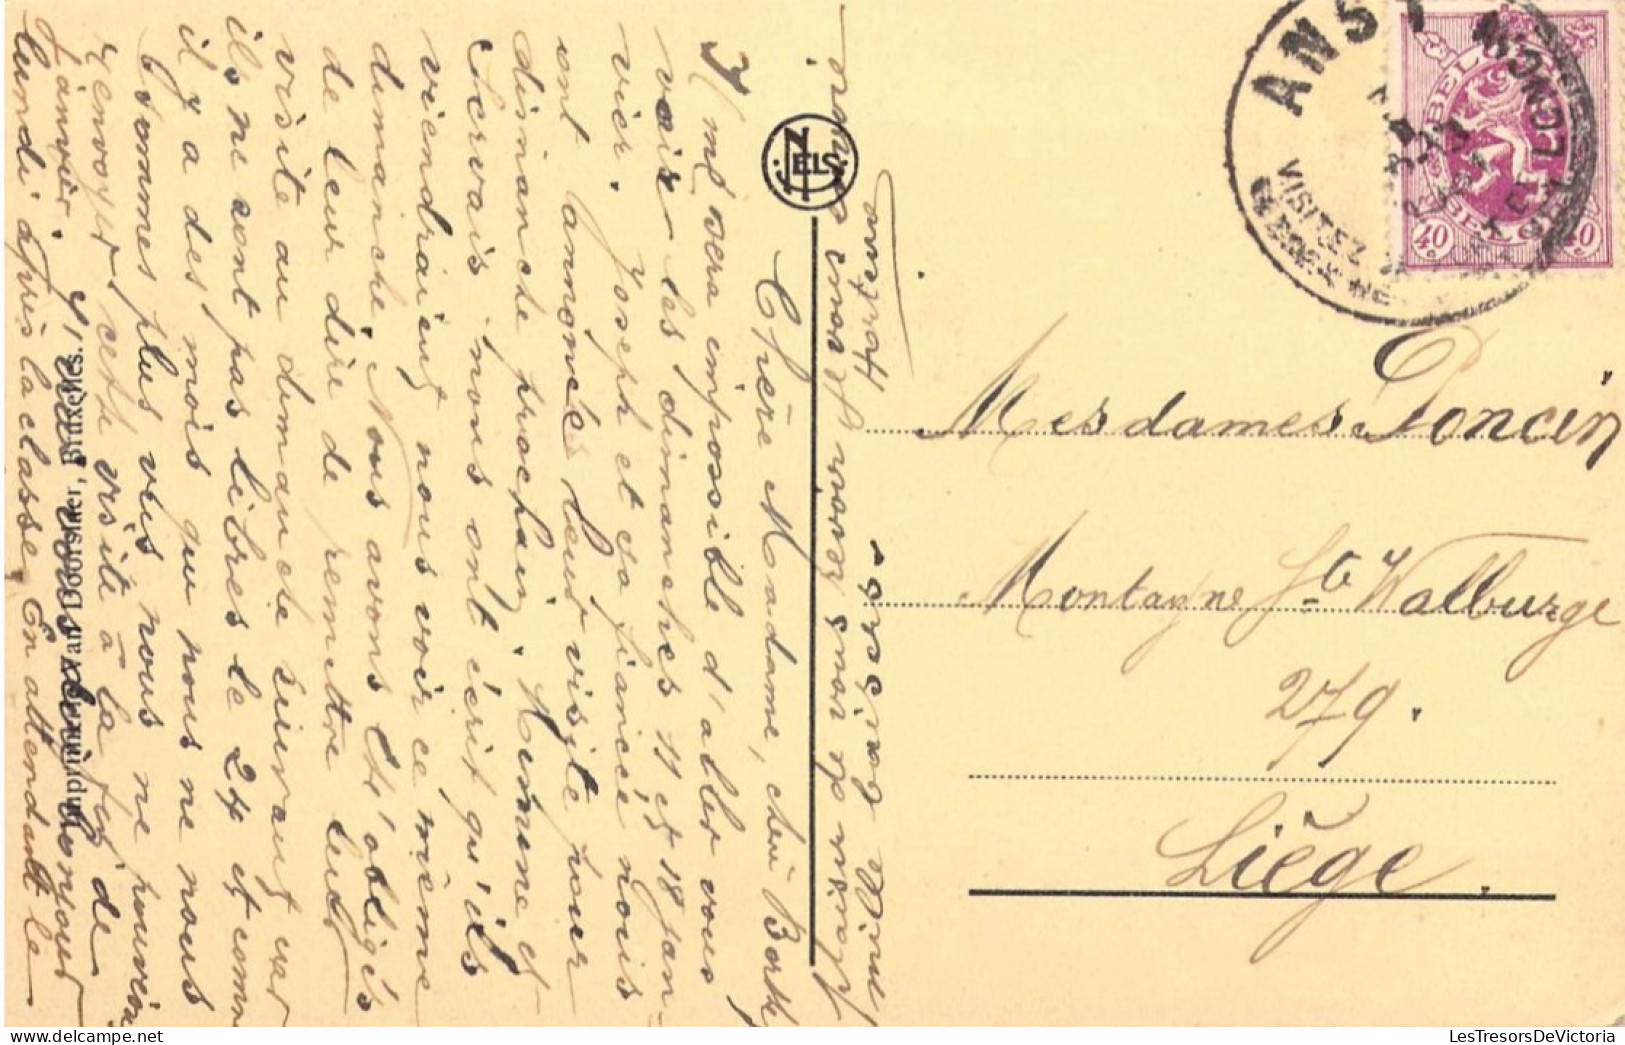 Chère Madame, chèr Bertha
Il me sera impossible d'aller vous
voir les dimanches 11 et 18 jan-
vier. Joseph et sa fiancée nous
ont annoncés leur visite pour
dimanche prochain. Hermine et
Servais nous ont écrit qu'ils
viendraient nous voir ce même
dimanche. Nous avons été obligés
de leur dire de remettre leur
visite au dimanche suivant car
ils ne sont pas libres le 24 et comme
il y a des mois que nous ne nous
sommes plus vus nous ne pouvions
renvoyer cette visite à la fin de
janvier.
lundi après la classe. En attendant le
plaisir de vous revoir je vous envoie
mille baisers.
Hortense
NELS
Imprimerie Van Doorslaer, Bruxelles.
ANS
VISITEZ
BELGIQUE
BELGIË
40 40
Mesdames Poncin
Montagne Ste Walburge
279.
Liège.
LesTresorsDeVictoria